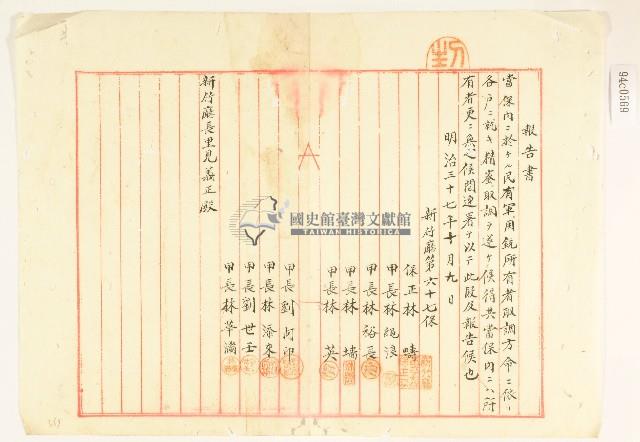 報告書
當保内ニ於ケル民有軍用銃所有者取調方命ニ依リ
各戸ニ就キ精密取調ヲ遂ケ候得共當保内ニハ所
有者更ニ無之候間連署ヲ以テ此段及報告候也
明治三十七年十月九日
新竹廳第六十七保
保正林 疇
甲長林 繩浪
甲長林 裕長
甲長林 墻
甲長林 英
甲長劉 占印
甲長林 添來
甲長劉 世壬
甲長林 華
新竹廳長里見義正殿
國史館臺灣文獻館
TAIWAN HISTORICA
94c0569